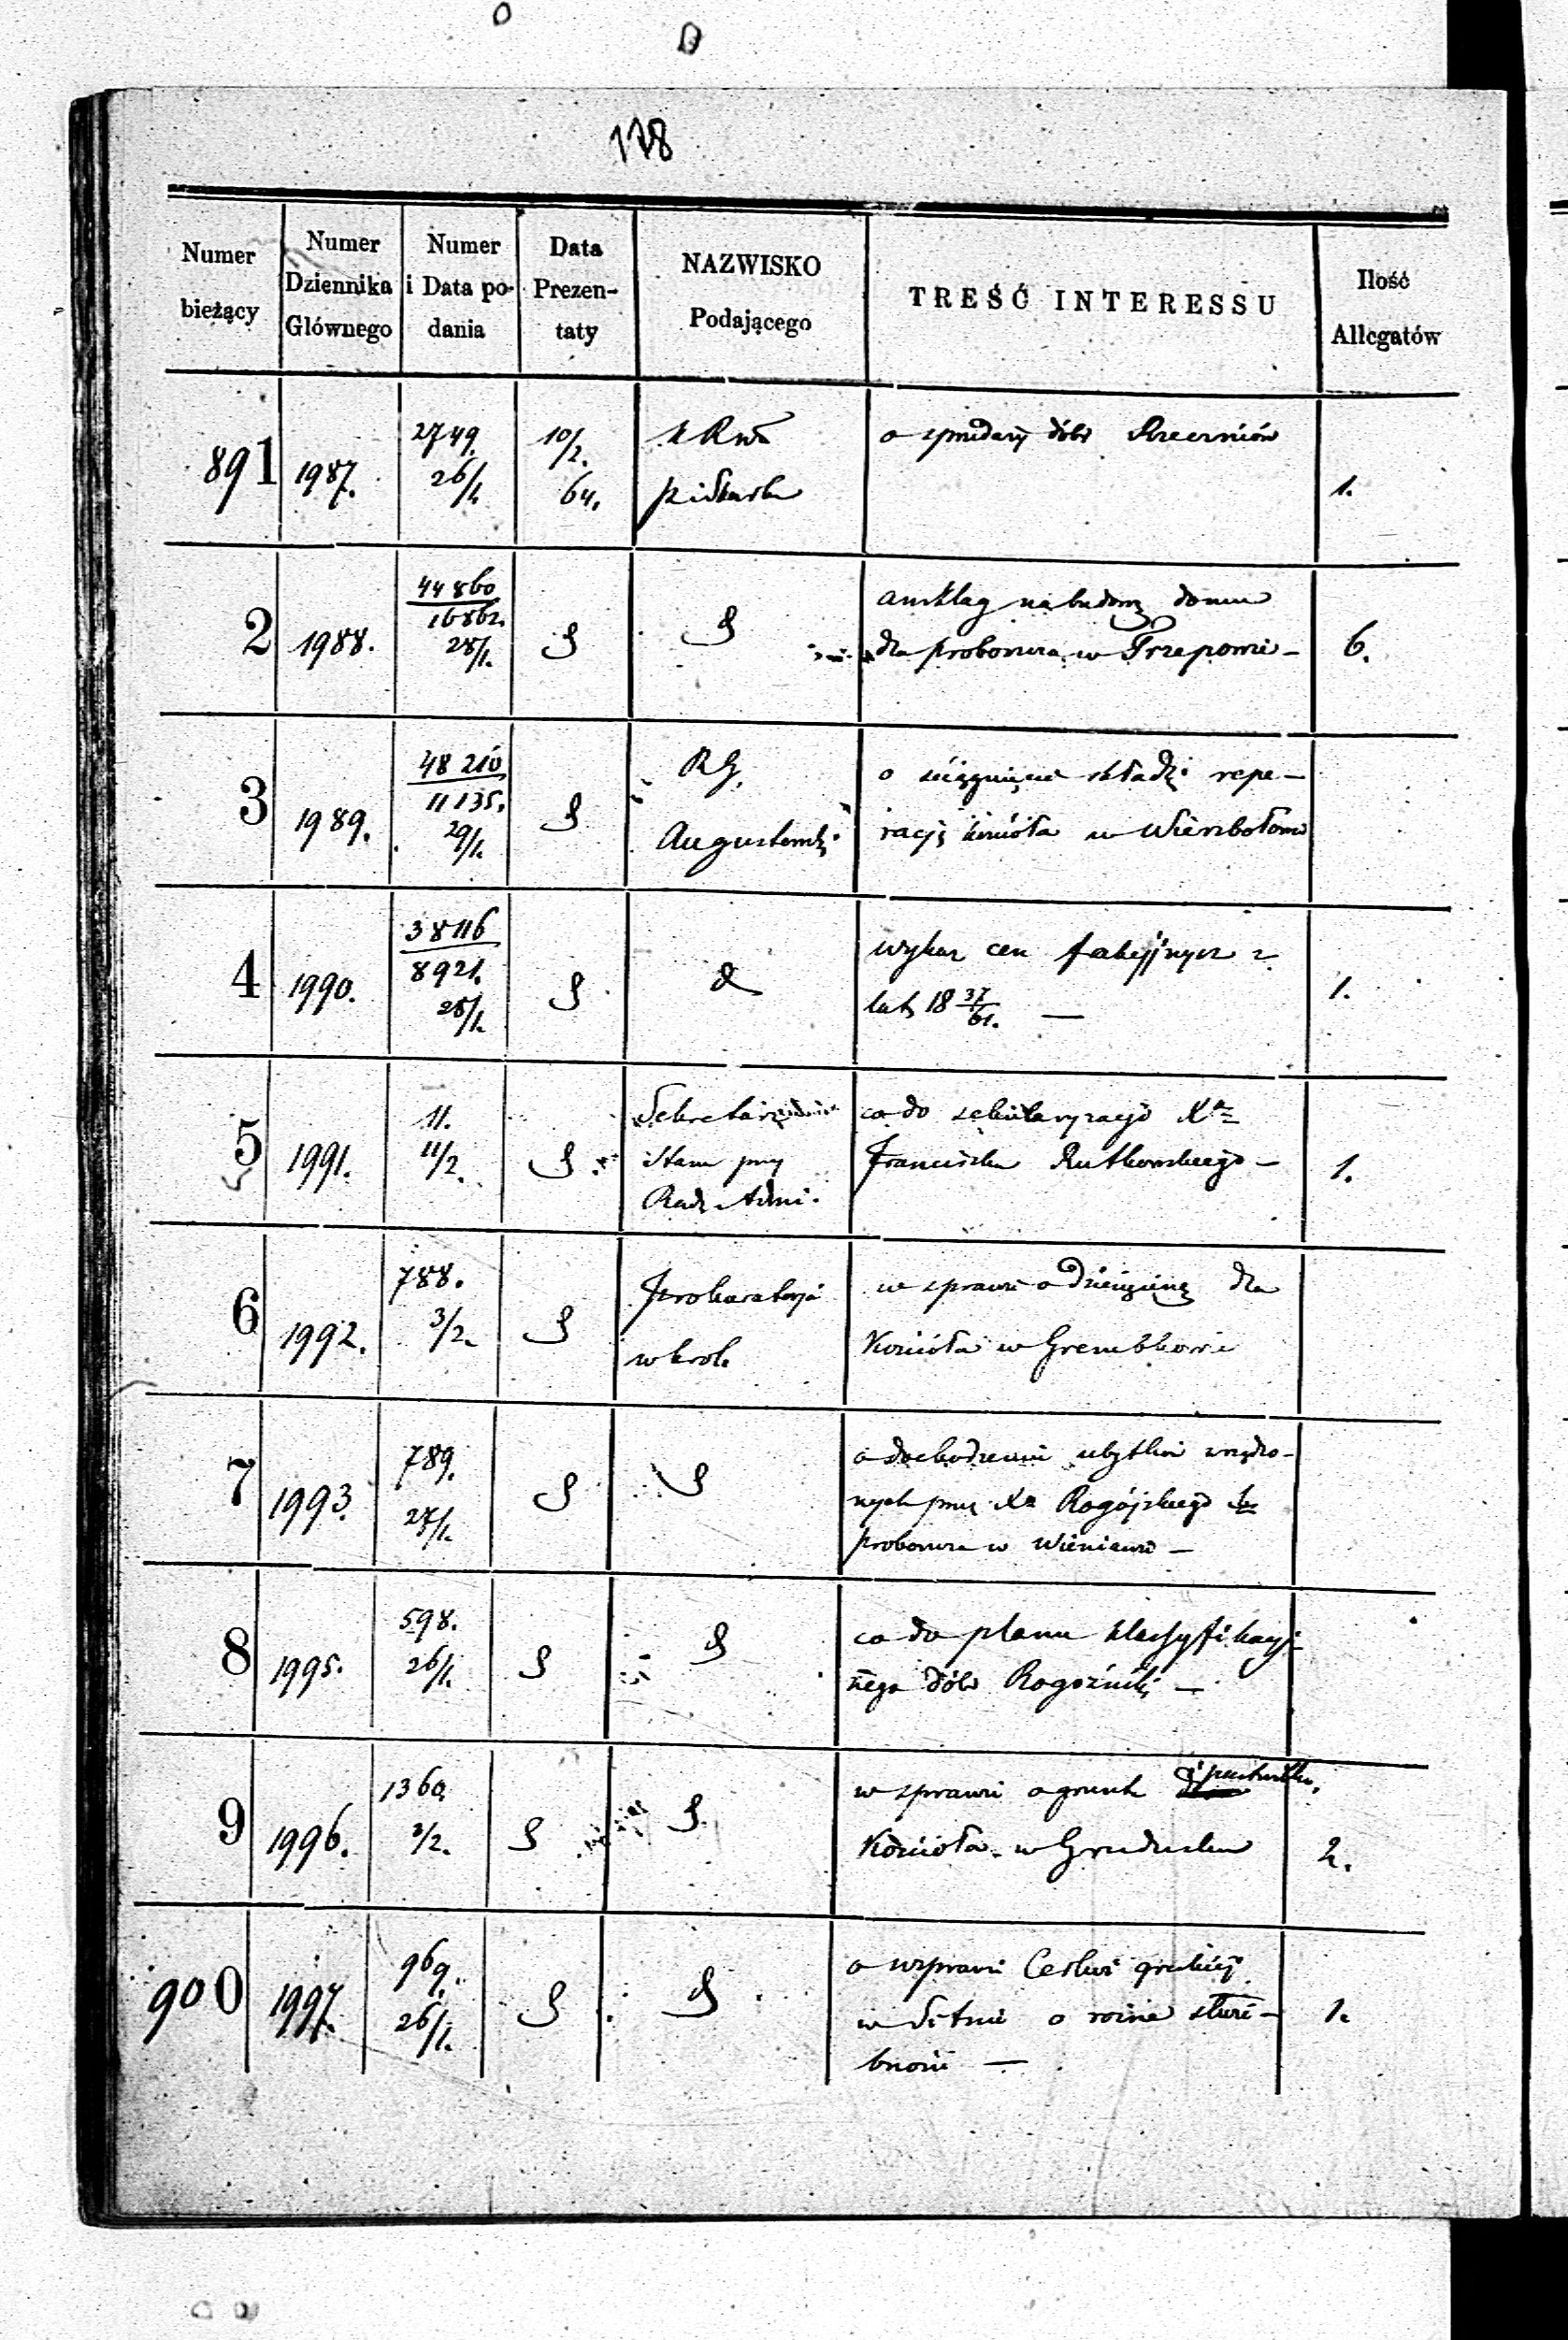 178
Numer bieżący
Numer Dziennika Głównego
Numer i Data podania
Data Prezentaty
NAZWISKO Podającego
TREŚĆ INTERESSU
Ilość Allegatów
891
1987.
2749.
26/1.
10/2.
64.
o dóbr
1.
2
1988.
44860
16862.
28/1.
anszlag na budowę domu
dla proboszcza w Trzepowie –
6.
3
1989.
48210
11135.
29/1.
RG.
Augustowski
o ściągnięcie składki repe–
racji kościoła w Wierzbołowie
4
1990.
38116
8921.
28/1.
wykaz cen z
lat 18 37/61. —
1.
5
1991.
11.
11/2.
Sekretarz
Stanu przy
Radz. Admi.
co do sekularyzacji Xa
Franciszka Rutkowskiego –
1.
6
1992.
788.
3/2.
Prokuratorja
w Król.
w sprawie o dziesięcinę dla
Kościoła w Grembkowie
7
1993.
789.
27/1.
o dochodzenie ubytków zrządzo–
nych przez Xa Rogójskiego
proboszcza w Wieniawie –
8
1995.
598.
26/1.
co do planu klassyfikacyj–
nego dóbr Rogoźnik –
9
1996.
1360.
2/2.
w sprawie o grunt
Kościoła w Grudusku
2.
900
1997.
969.
26/1.
o Cerkwi greckiej
w o różne służe–
bności —
1.